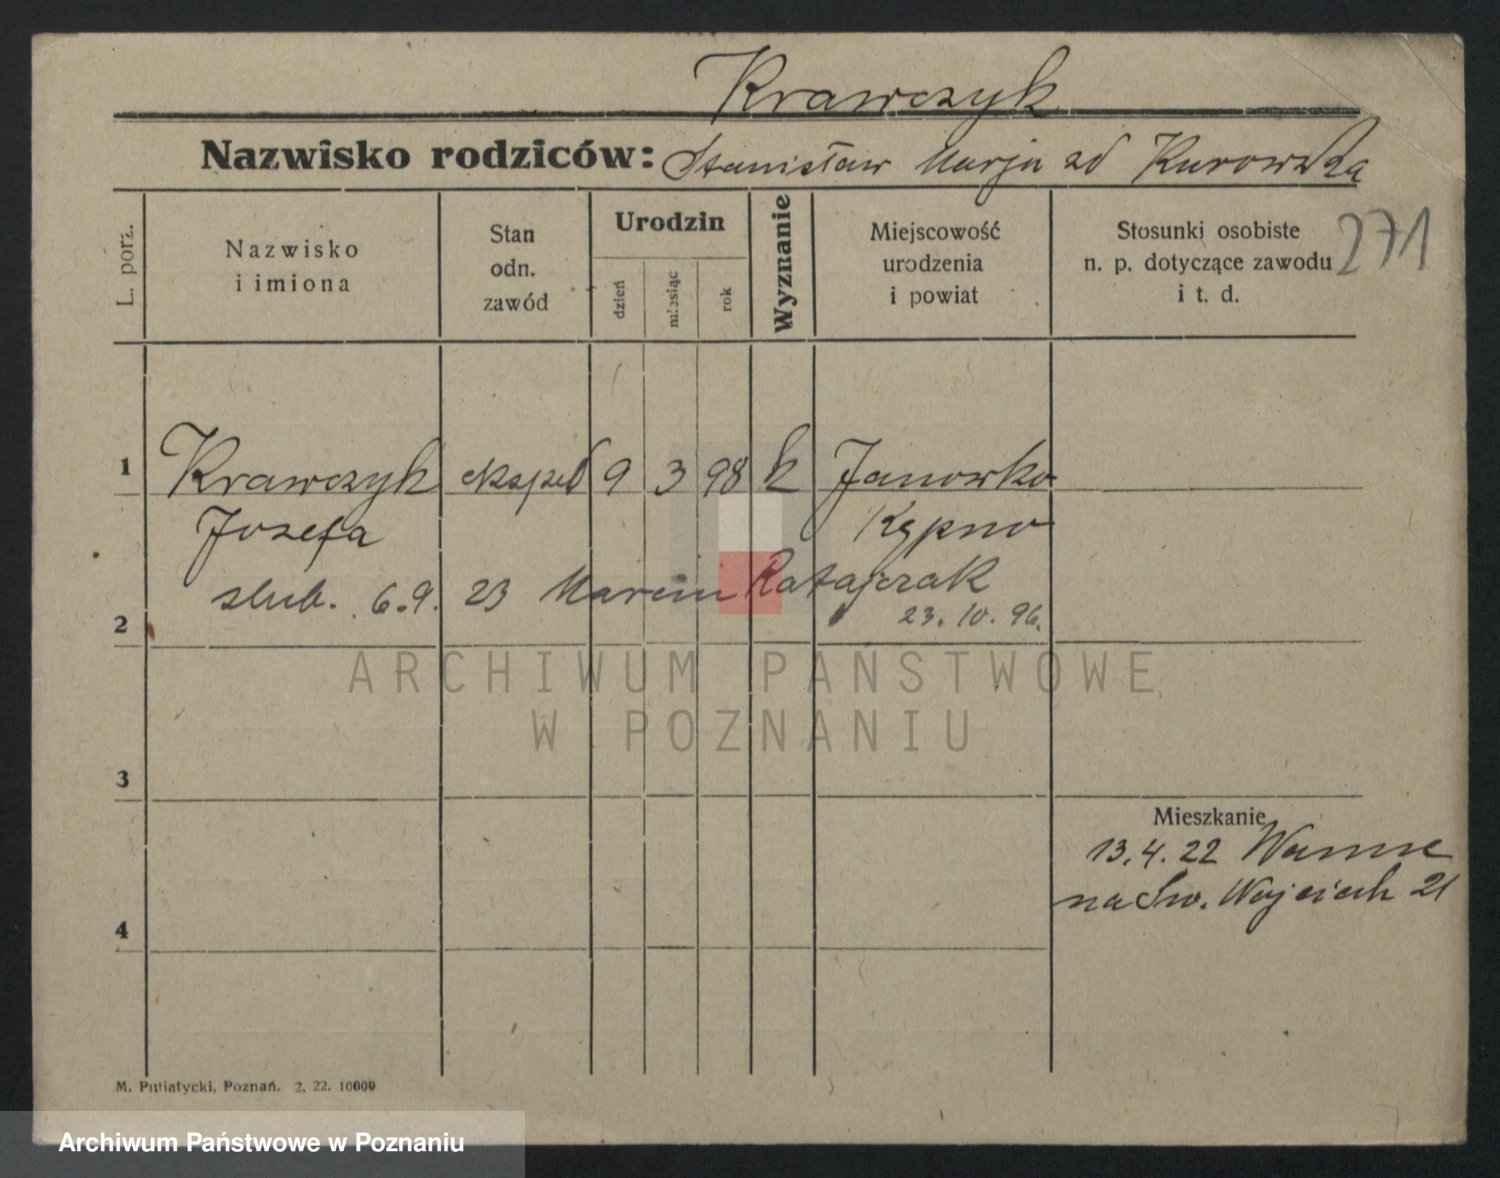 Krawczyk
Nazwisko rodziców: Stanisław Marja zd Kurowska
L. porz.
Nazwisko
i imiona
Stan
odn.
zawód
Urodzin
dzień
miesiąc
rok
Wyznanie
Miejscowość
urodzenia
i powiat
Stosunki osobiste
n. p. dotyczące zawodu
i t. d.
271
1 Krawczyk eksped 9 3 98 k Janowko
Josefa Kępno
slub. 6.9. 23 Marcin Ratajczak
2 23. 10. 96.
ARCHIWUM PAŃSTWOWE
W POZNANIU
3
Mieszkanie
13.4.22
na Św. Wojciech 21
4
M. Putiatycki, Poznań. 2. 22. 10000
Archiwum Państwowe w Poznaniu